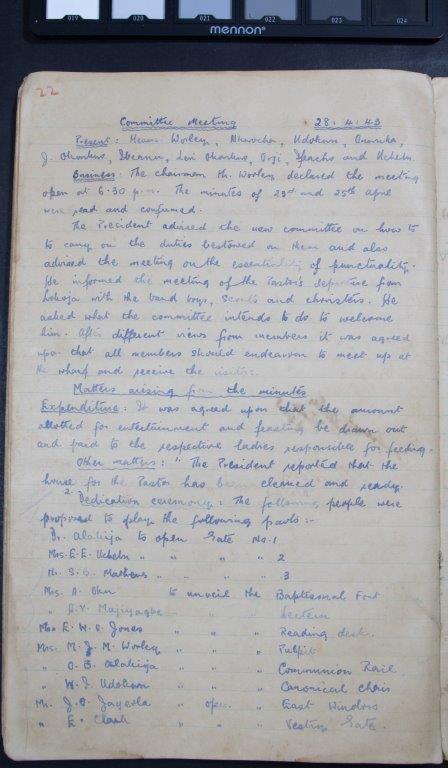 019 020 021 022 023 024
mennon
22
Committee Meeting 28. 4. 43
Present: Messrs Worley, Nkwocha, Udokum,
J. Okonkwo, Levi Okonkwo, Orji, and Uchehn.
Business: The chairman Mr. Worley declared the meeting
open at 6.30 p.m. The minutes of 23rd and 25th April
were read and confirmed.
The President advised the new committee on how to
to carry on the duties bestowed on them and also
advised the meeting on the essentiality of punctuality.
He informed the meeting of the Pastor's departure from
Lokoja with the band boys, scouts and choristers. He
asked what the committee intends to do to welcome
him. After different views from members it was agreed
upon that all members should endeavour to meet up at
the wharf and receive the visitors.
Matters arising from the minutes
Expenditure: It was agreed upon that the amount
allotted for entertainment and feasting be drawn out
and paid to the respective ladies responsible for feeding.
Other matters: " The President reported that the
house for the Pastor has been cleaned and ready.
2. Dedication ceremony: The following people were
proposed to play the following parts:-
Dr. Alakija to open Gate No. 1
Mrs. E. E. Uchehn " " " 2
Mr. S. B. Mathews " " " 3
Mrs. A. to unveil the Baptesmal Font
" A. Y. Majiyagbe " " Lectern
E. W. O. Jones " " " Reading desk.
Mrs. M. J. M. Worley " " " Pulpit
" O. B. Alakija " " " Communion Rail
" W. J. Udokum " " " Canonical chairs
Mr. J. O. Jayeola " open " East Windows
" E. Clark " " " Vestry Gate.